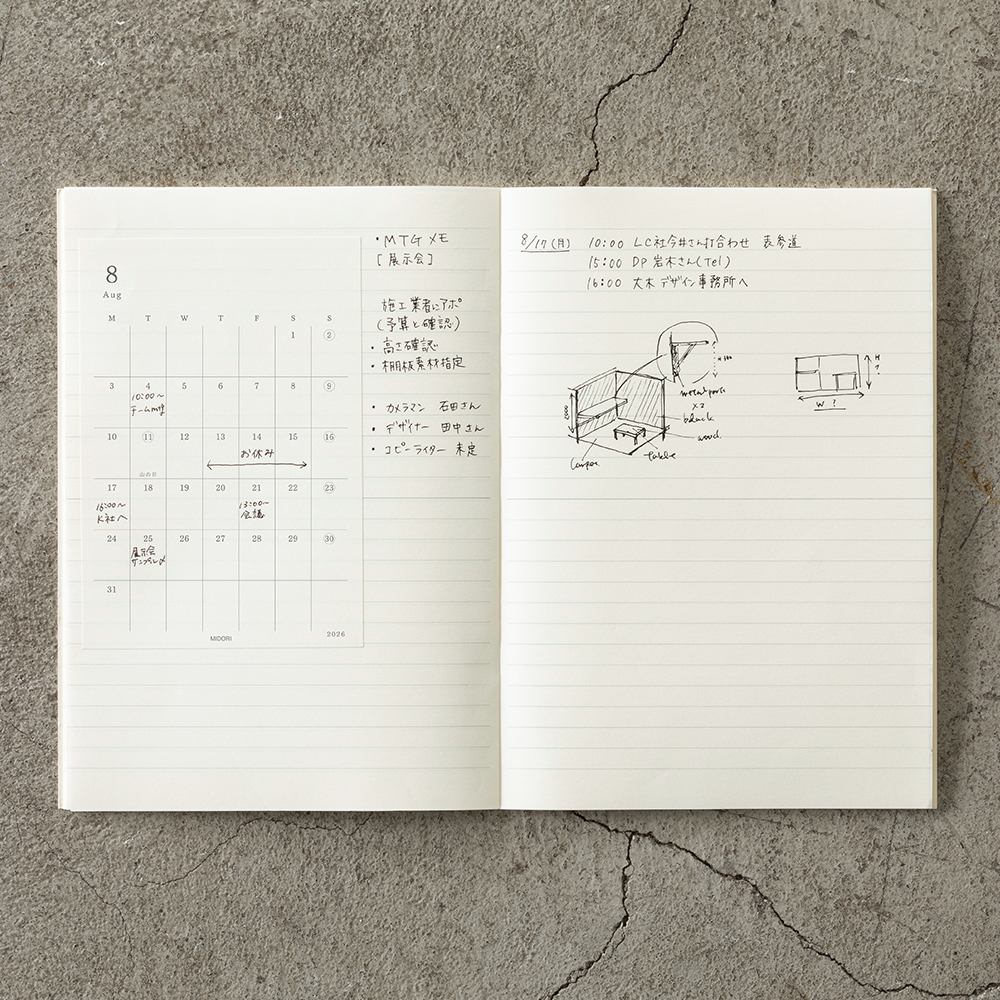 8
Aug
M T W T F S S
1 ②
3 4 5 6 7 8 ⑨
10:00〜
チームmtg
10 ⑪ 12 13 14 15 ⑯
お休み
山の日
17 18 19 20 21 22 ㉓
16:00〜
K社へ
13:00〜
会議
24 25 26 27 28 29 ㉚
展示会
サンプル〆
31
MIDORI
2026
・MTGメモ
[展示会]
施工業者にアポ
(予算と確認)
・高さ確認
・棚板素材指定
・カメラマン 石田さん
・デザイナー 田中さん
・コピーライター 未定
8/17(月) 10:00 LC社今井さん打合わせ 表参道
15:00 DP岩木さん(Tel)
16:00 大木デザイン事務所へ
×2
black
wood
table
H ?
W ?